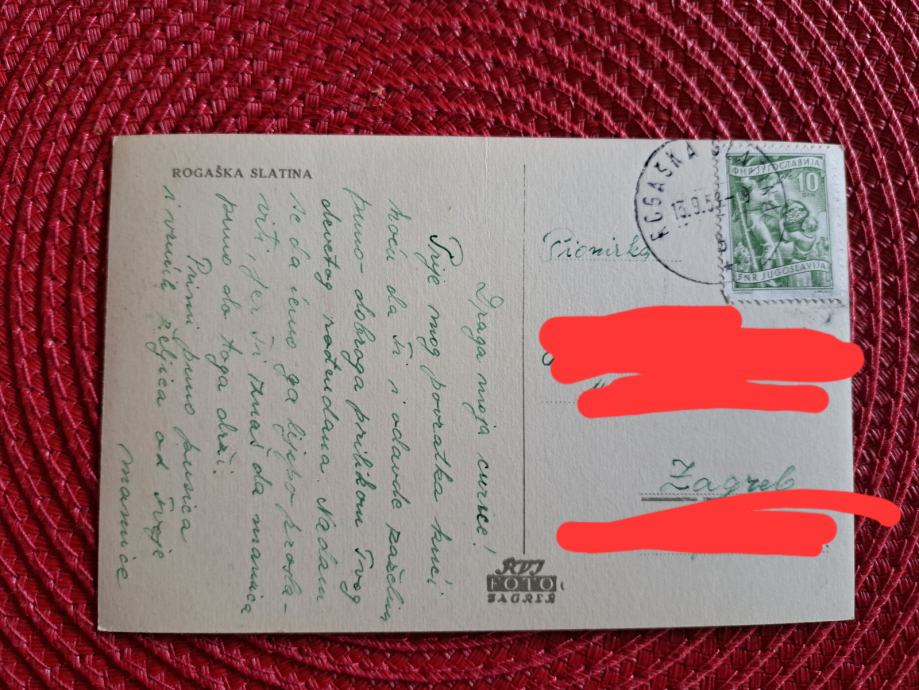 ROGAŠKA SLATINA
Draga moja curice!
Prije mog povratka kući
hoću da Ti i odavde zaželim
puno-dobroga prilikom Tvog
devetog rođendana. Nadam
se da ćemo ga lijepo prosla-
viti, jer Ti znaš da mamica
puno do toga drži.
Primi puno pusica
i vrućih željica od Tvoje
mamice
Pionirka
Zagreb
ROGAŠKA
13.9.5
ФНР ЈУГОСЛАВИЈА
10
FNR JUGOSLAVIJA
FOTO
ZAGREB